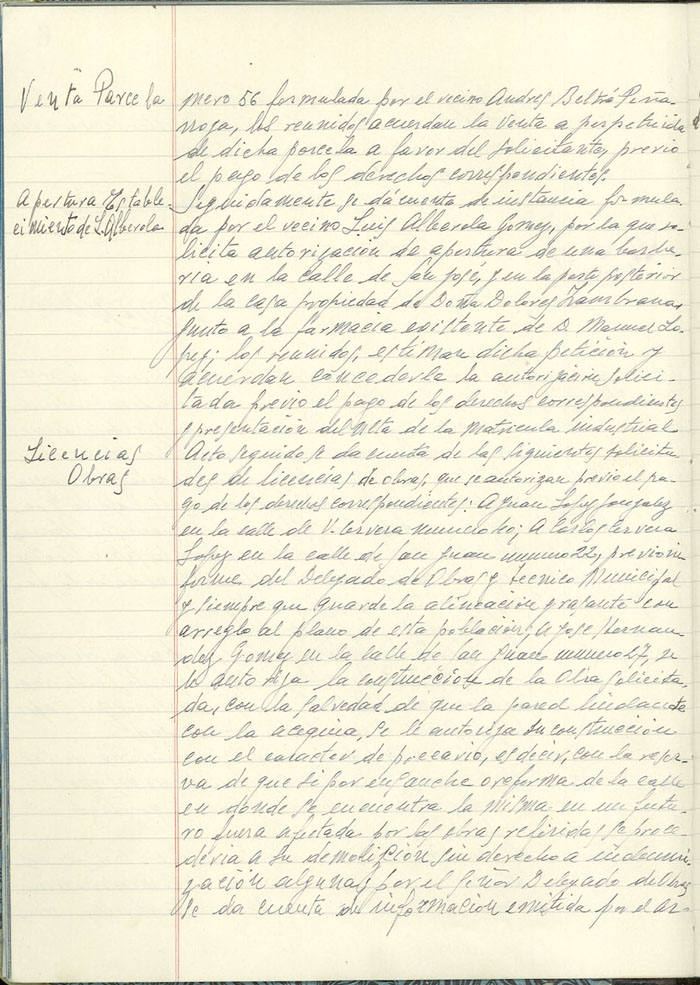 Venta Parcela
mero 56 formulada por el vecino Andres Beltrá Peña-
rroja, los reunidos acuerdan la Venta a perpetuidad
de dicha parcela a favor del solicitante, previo
el pago de los derechos correspondientes.
Apertura Estable-
cimiento de L. Alberola
Seguidamente se dá cuenta de instancia formula-
da por el vecino Luis Alberola Gomez, por la que so-
licita autorización de apertura de una barbe-
ria en la calle de San Jose, y en la parte posterior
de la casa propiedad de Doña Dolores Zambrana,
junto a la farmacia existente de D. Manuel Lo-
pez; los reunidos, estiman dicha petición y
acuerdan concederle la autorización solici-
tada previo el pago de los derechos correspondientes
y presentación del Alta de la Matricula industrial
Licencias
Obras
Acto seguido se da cuenta de las siguientes solicitu-
des de licencias de obras, que se autorizan previo el pa-
go de los derechos correspondientes: A Juan Lopez Gonzalez
en la calle de V. Cervera numero 10; A Carlos Cervera
Lopez en la calle de San Juan numero 22, previo in-
forme del Delegado de Obras y Tecnico Municipal
y siempre que guarde la alineación y rasante con
arreglo al plano de esta población; A Jose Hernan-
dez Gomez en la calle de San Juan numero 27, se
le autoriza la construcción de la Obra solicita-
da, con la salvedad de que la pared lindante
con la acequia, se le autoriza su construcción
con el caracter de precario, es decir, con la reser-
va de que si por ensanche o reforma de la calle
en donde se encuentra la misma en un futu-
ro fuera afectada por las obras referidas se proce-
deria a su demolición sin derecho a indemni-
zación alguna; por el Señor Delegado de Obras
se da cuenta de información emitida por el Ar-